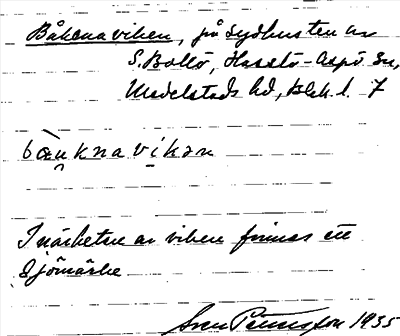 Båkenaviken, på sydkusten av
S. Bollö, Hasslö-Aspö sn,
Medelstads hd, Blek. l. 7
bæu̯knavi̱kən
I närheten av viken finnes ett
sjömärke
Sven Benson 1935